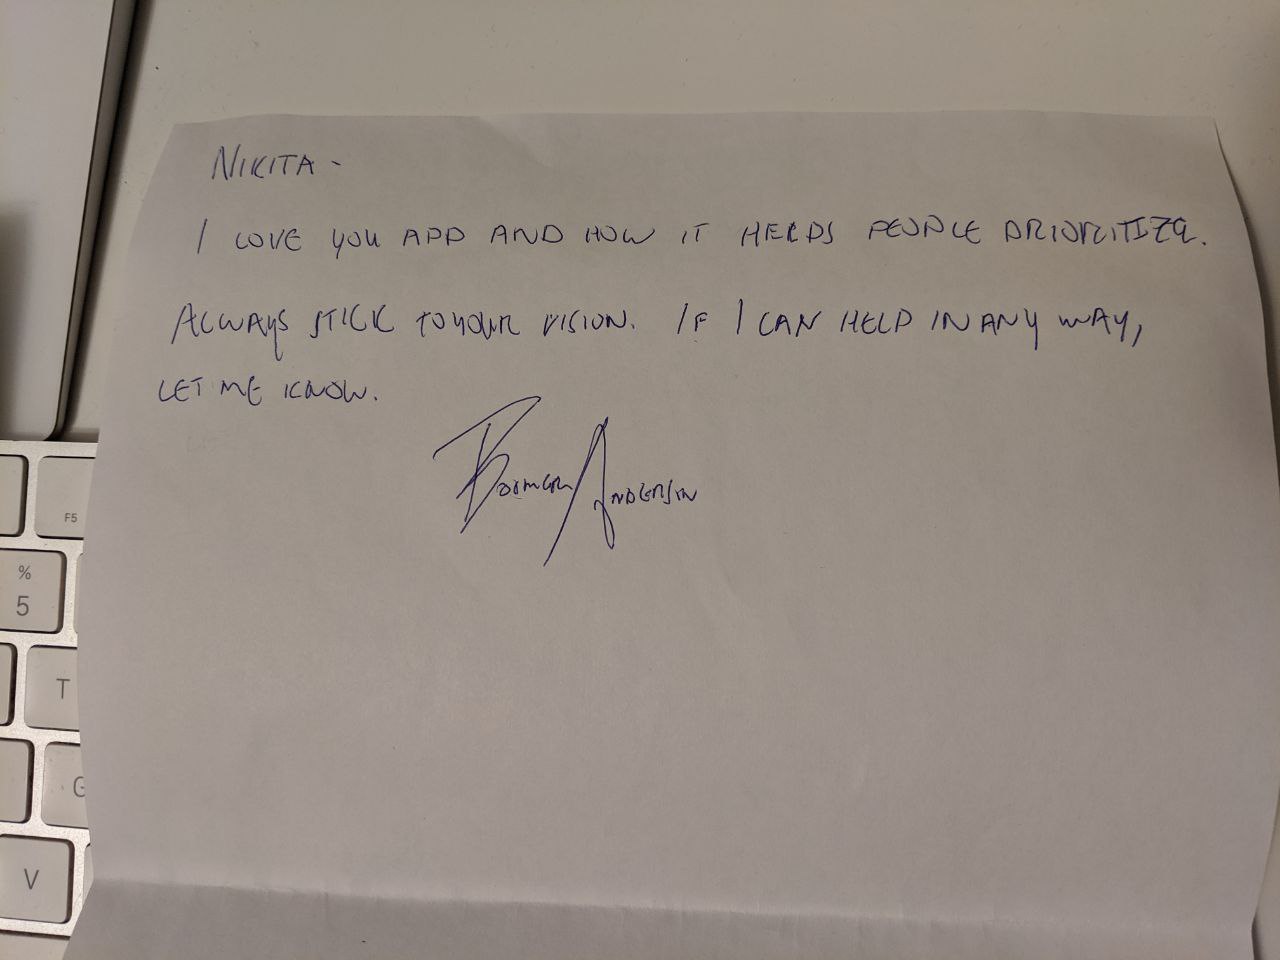 NIKITA -
I LOVE YOU APP AND HOW IT HELPS PEOPLE PRIORITIZE.
ALWAYS STICK TO YOUR VISION. IF I CAN HELP IN ANY WAY,
LET ME KNOW.
ANDERSON
F5
%
5
T
G
V